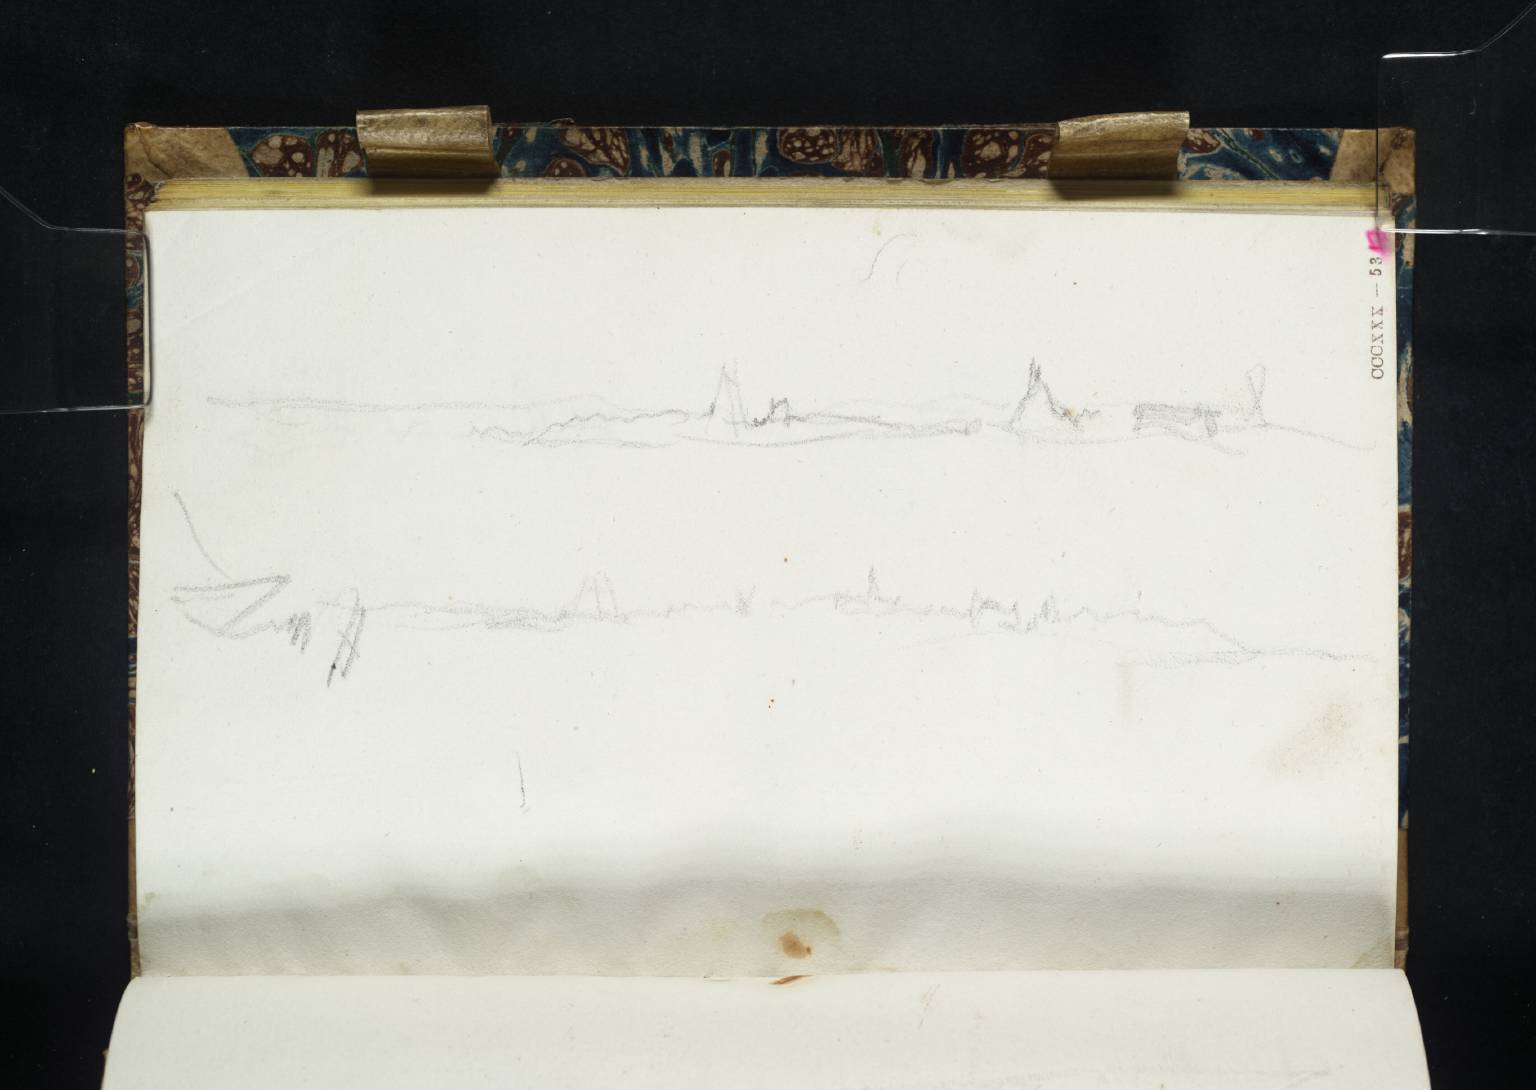 CCCXXX — 53